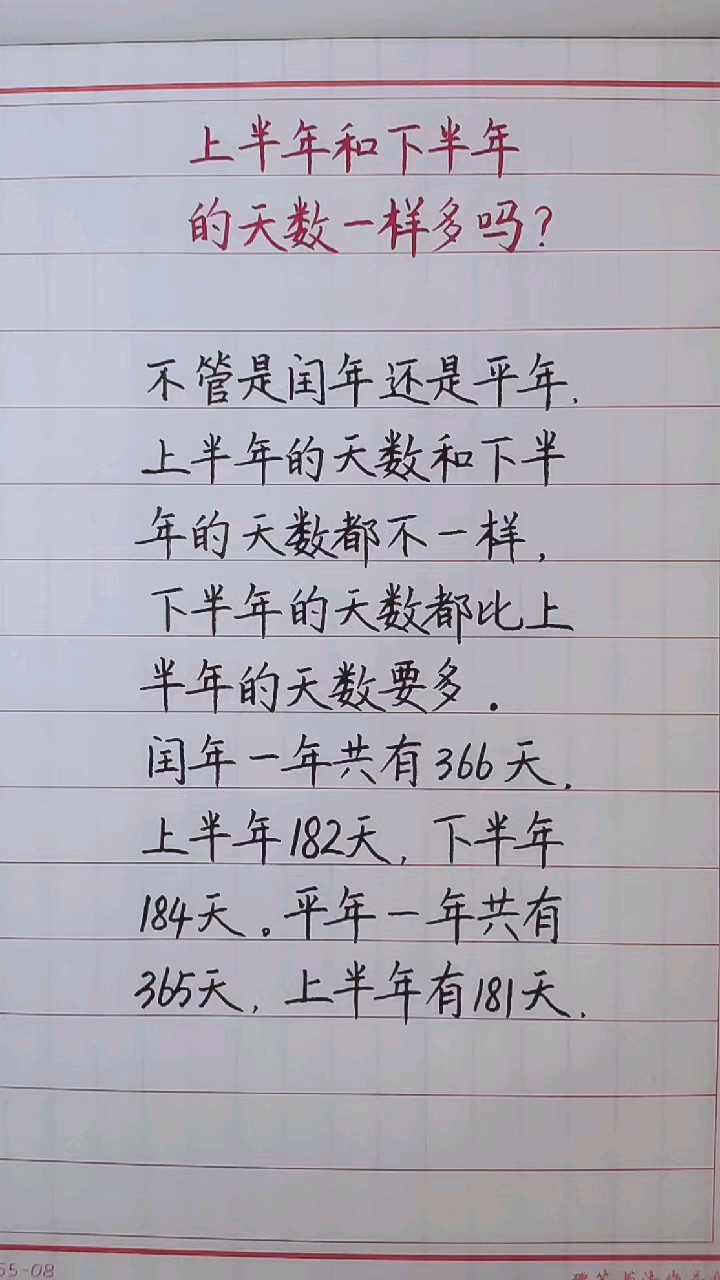 上半年和下半年
的天数一样多吗?
不管是闰年还是平年,
上半年的天数和下半
年的天数都不一样,
下半年的天数都比上
半年的天数要多.
闰年一年共有366天,
上半年182天,下半年
184天。平年一年共有
365天,上半年有181天,
55-08